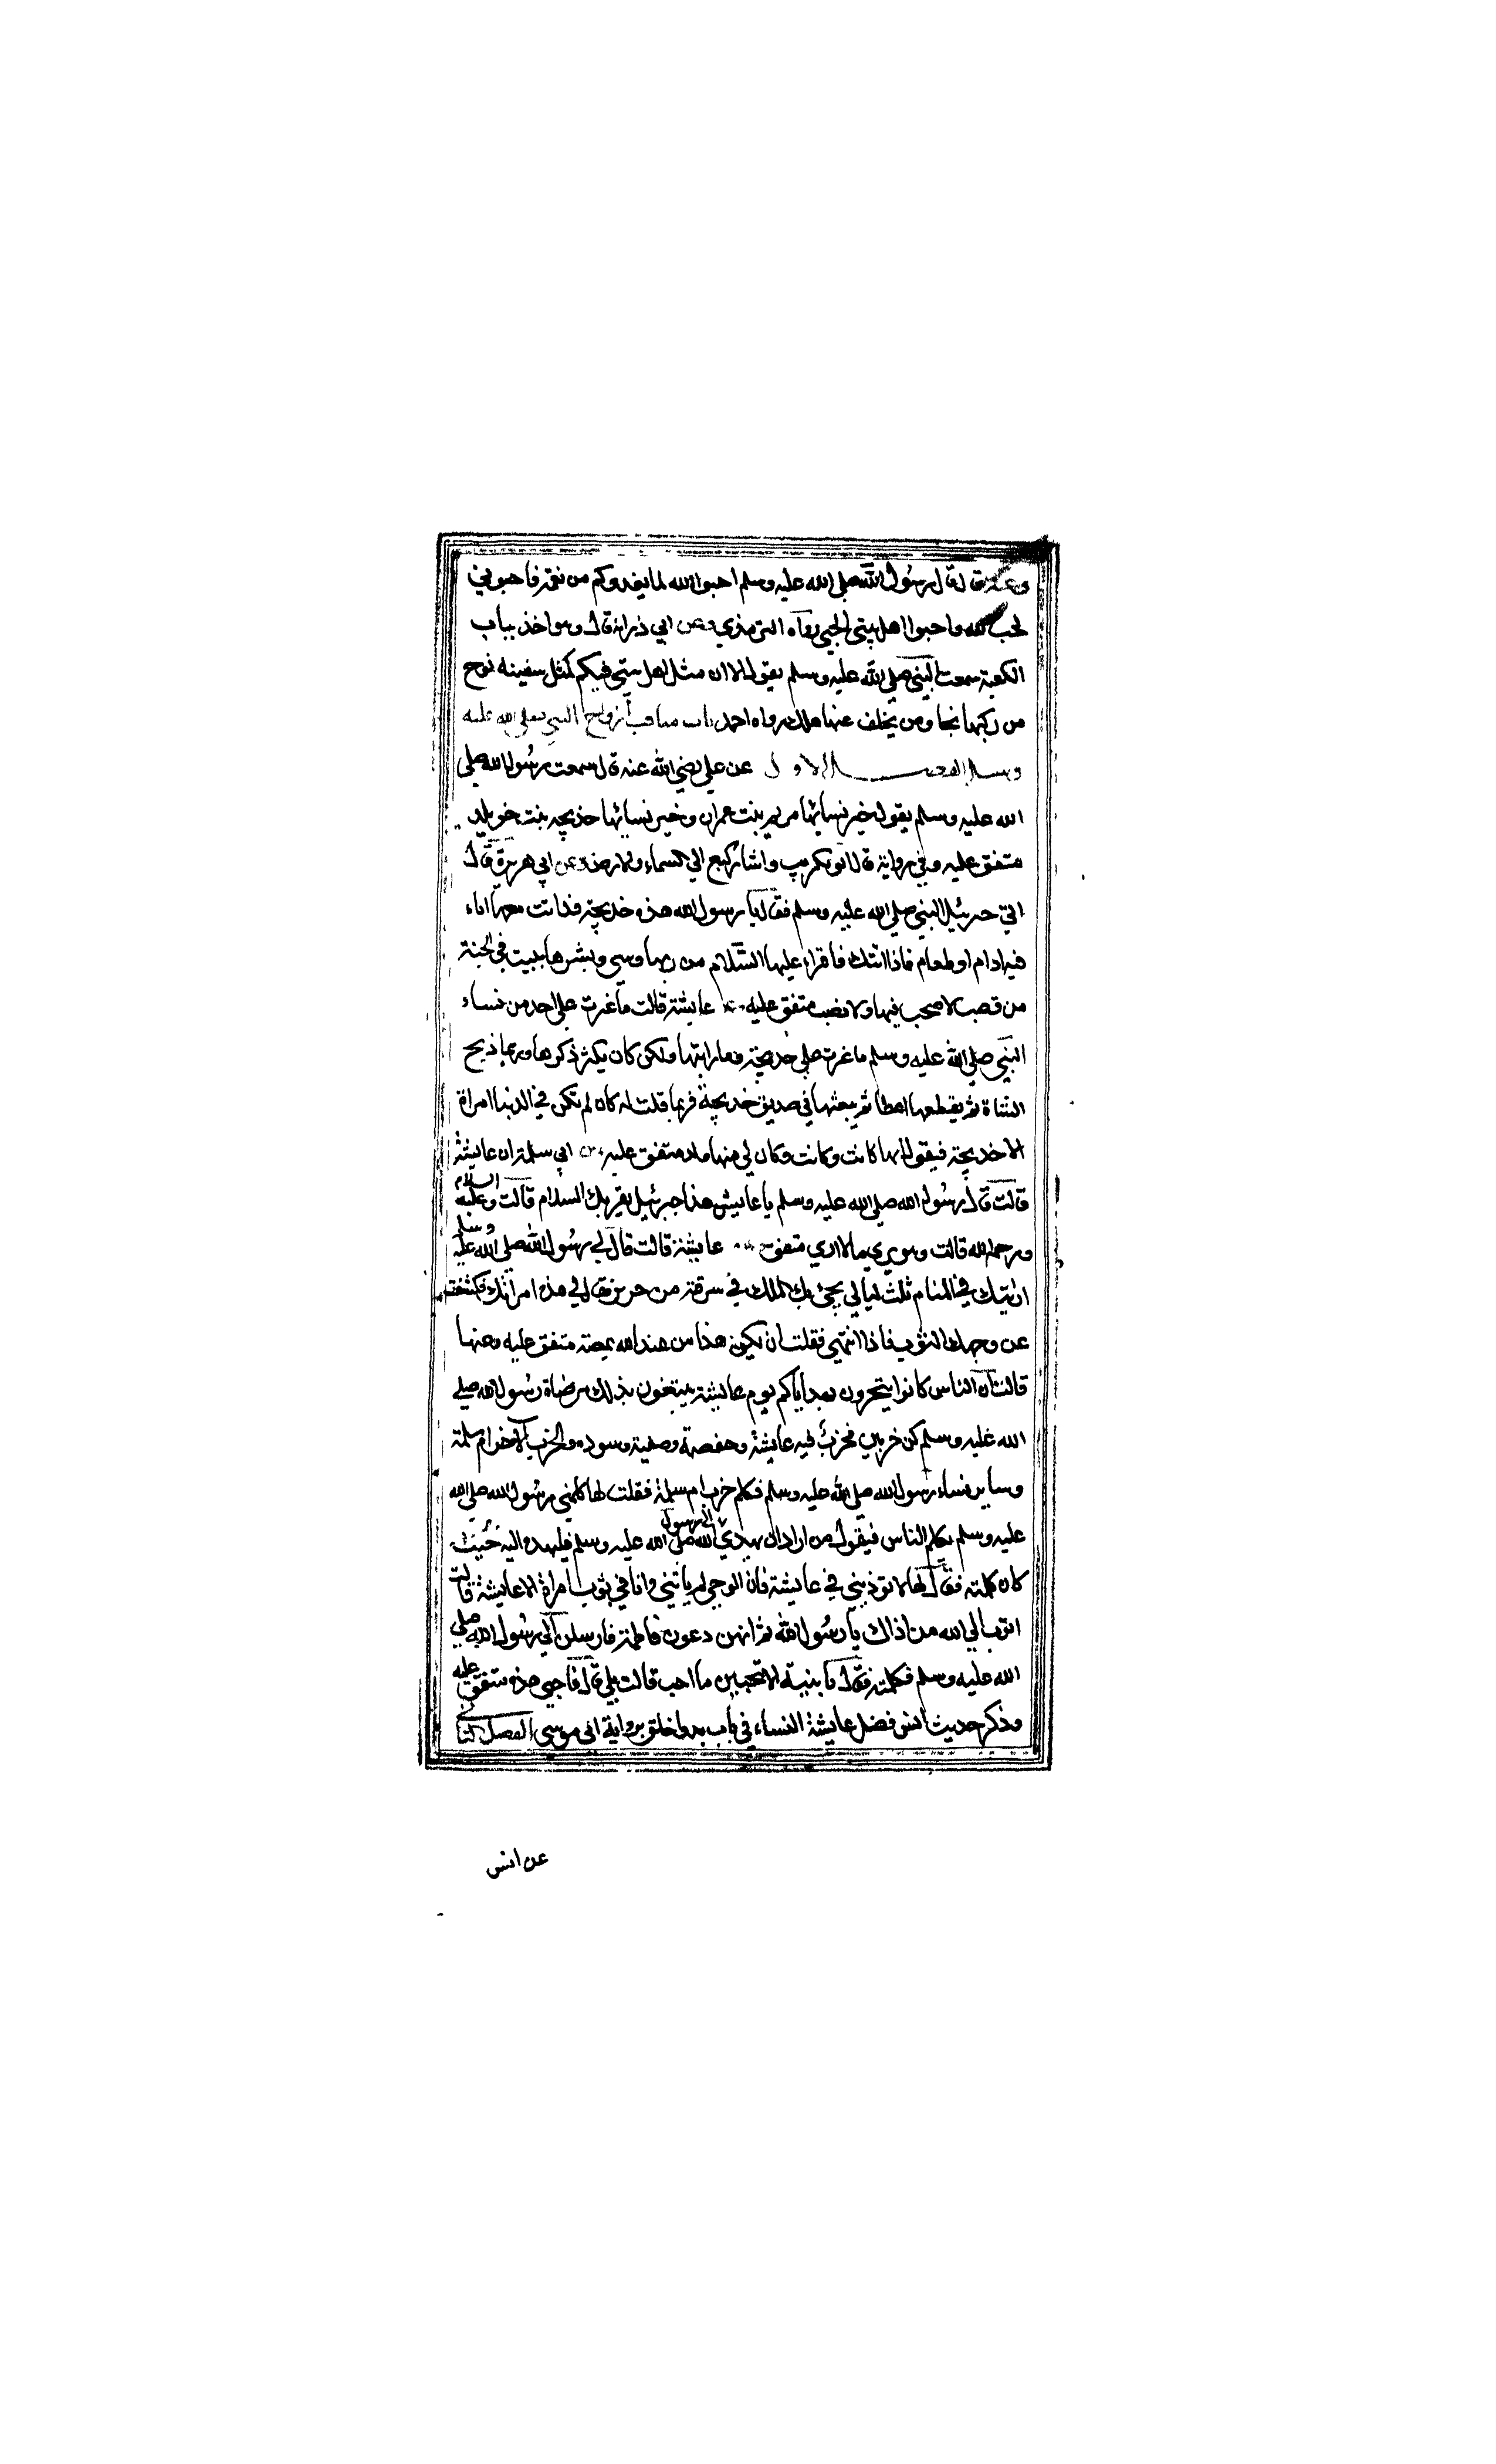 وعنه قال قال رسول الله صلى الله عليه وسلم احبوا الله لما يغذوكم من نعمه فاحبوني
لحب الله واحبوا اهل بيتي لحبي رواه الترمذي وعن ابي ذر انه قال وهو اخذ بباب
الكعبة سمعت النبي صلى الله عليه وسلم يقول الا ان مثل اهل بيتي فيكم كمثل سفينه نوح
من ركبها نجا ومن يخلف عنها هلك رواه احمد باب مناقب أزواج النبي صلى الله عليه
وسلم الفصل الاول عن علي رضي الله عنه قال سمعت رسول الله صلى
الله عليه وسلم يقول خير نسائها مريم بنت عمران وخير نسائها خديجه بنت خويلد
متفق عليه وفي رواية قال ابو كريب واشار وكيع الي السماء والارض وعن ابي هريرة قال
اتي جبرئيل النبي صلى الله عليه وسلم فقال يا رسول الله هذه خديجة قد اتت معها اناء
فيه ادام او طعام فاذا اتتك فاقراء عليها السّلام من ربها ومني وبشرها ببيت في الجنة
من قصب لا صخب فيها ولا نصب متفق عليه وعن عايشة قالت ما غرت على احد من نساء
النبي صلى الله عليه وسلم ما غرت على خديجة وما رايتها ولكن كان يكثر ذكرها وربما ذبح
الشاة ثم يقطعها اعضا ثم يبعثها في صديق خديجة فربما قلت له كان لم تكن في الدنيا امراة
الا خديجة فيقول انها كانت وكانت وكان لي منها ولد متفق عليه وعن ابي سلمة ان عايشة
قالت قال رسول الله صلى الله عليه وسلم يا عايش هذا جبرئيل يقريك السلام قالت وعليه السلام
ورحمة الله قالت وهو يري ما لا اري متفق وعن عايشة قالت قال لي رسول الله صلى الله عليه وسلم
اريتك في المنام ثلث ليالي يجئ بك الملك في سرقة من حرير فقال لي هذه امراتك فكشفت
عن وجهك الثوب فاذا انت هي فقلت ان يكون هذا من عند الله يمضه متفق عليه وعنها
قالت ان الناس كانوا يتحرون بهداياكم يوم عايشة يبتغون بذلك مرضاة رسول الله صلى
الله عليه وسلم كن حزبين فحزب فيه عايشة وحفصة وصفية وسوده والحزب الاخر ام سلمة
وساير نساء رسول الله صلى الله عليه وسلم فكلم حزب ام سلمة فقلت لها كلمي رسول الله صلى الله
عليه وسلم يكلم الناس فيقول من اراد ان يهدي الى رسول الله صلى الله عليه وسلم فليهده اليه حيث
كان كلمته فقال لها لا توذيني في عايشة فان الوحي لم ياتني وانا في ثوب امراة الا عايشة قالت
اتوب الى الله من اذاك يا رسول الله ثم انهن دعون فاطمة فارسلن الى رسول الله صلى
الله عليه وسلم فكلمته فقال يا بنية الا تحبين ما احب قالت بلي قال فاحبي هذه متفق عليه
وذكر حديث انس فضل عايشة النساء في باب بدو الخلق برواية ابي موسى الفصل الثاني
عن انس